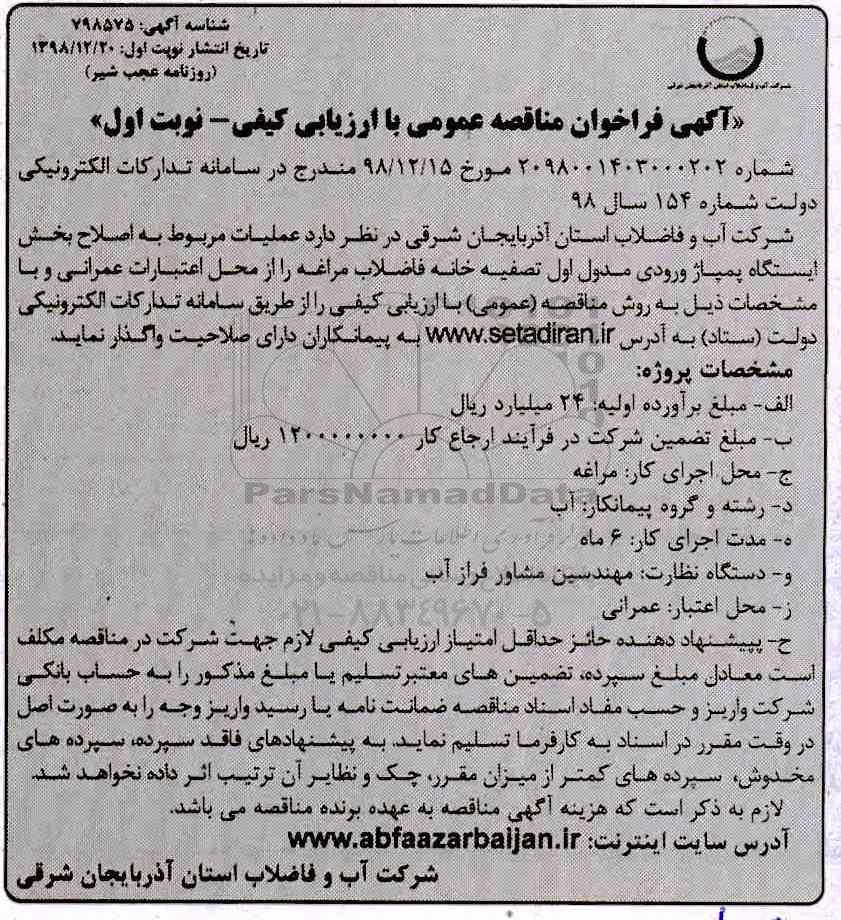 شناسه آگهی: ۷۹۸۵۷۵
تاریخ انتشار نوبت اول: ۱۳۹۸/۱۲/۲۰
(روزنامه عجب شیر)
شرکت آب و فاضلاب استان آذربایجان شرقی
«آگهی فراخوان مناقصه عمومی با ارزیابی کیفی- نوبت اول»
شماره ۲۰۹۸۰۰۱۴۰۳۰۰۰۲۰۲ مورخ ۹۸/۱۲/۱۵ مندرج در سامانه تدارکات الکترونیکی
دولت شماره ۱۵۴ سال ۹۸
شرکت آب و فاضلاب استان آذربایجان شرقی در نظر دارد عملیات مربوط به اصلاح بخش
ایستگاه پمپاژ ورودی مدول اول تصفیه خانه فاضلاب مراغه را از محل اعتبارات عمرانی و با
مشخصات ذیل به روش مناقصه (عمومی) با ارزیابی کیفی را از طریق سامانه تدارکات الکترونیکی
دولت (ستاد) به آدرس www.setadiran.ir به پیمانکاران دارای صلاحیت واگذار نماید.
مشخصات پروژه:
الف- مبلغ برآورده اولیه: ۲۴ میلیارد ریال
ب- مبلغ تضمین شرکت در فرآیند ارجاع کار ۱۲۰۰۰۰۰۰۰۰ ریال
ج- محل اجرای کار: مراغه
ParsNamadData
د- رشته و گروه پیمانکار: آب
ه- مدت اجرای کار: ۶ ماه
و- دستگاه نظارت: مهندسین مشاور فراز آب
ز- محل اعتبار: عمرانی
۰۲۱-۸۸۳۴۹۶۷۰-۵
ح- پیشنهاد دهنده حائز حداقل امتیاز ارزیابی کیفی لازم جهت شرکت در مناقصه مکلف
است معادل مبلغ سپرده، تضمین های معتبر تسلیم یا مبلغ مذکور را به حساب بانکی
شرکت واریز و حسب مفاد اسناد مناقصه ضمانت نامه یا رسید واریز وجه را به صورت اصل
در وقت مقرر در اسناد به کارفرما تسلیم نماید. به پیشنهادهای فاقد سپرده، سپرده های
مخدوش، سپرده های کمتر از میزان مقرر، چک و نظایر آن ترتیب اثر داده نخواهد شد.
لازم به ذکر است که هزینه آگهی مناقصه به عهده برنده مناقصه می باشد.
آدرس سایت اینترنت: www.abfaazarbaijan.ir
شرکت آب و فاضلاب استان آذربایجان شرقی